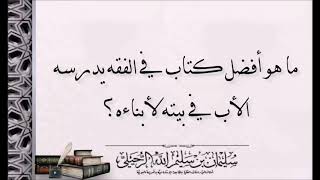 ما هو أفضل كتاب في الفقه يدرسه
الأب في بيته لأبناءه ؟
سليمان بن سليم الله الرحيلي